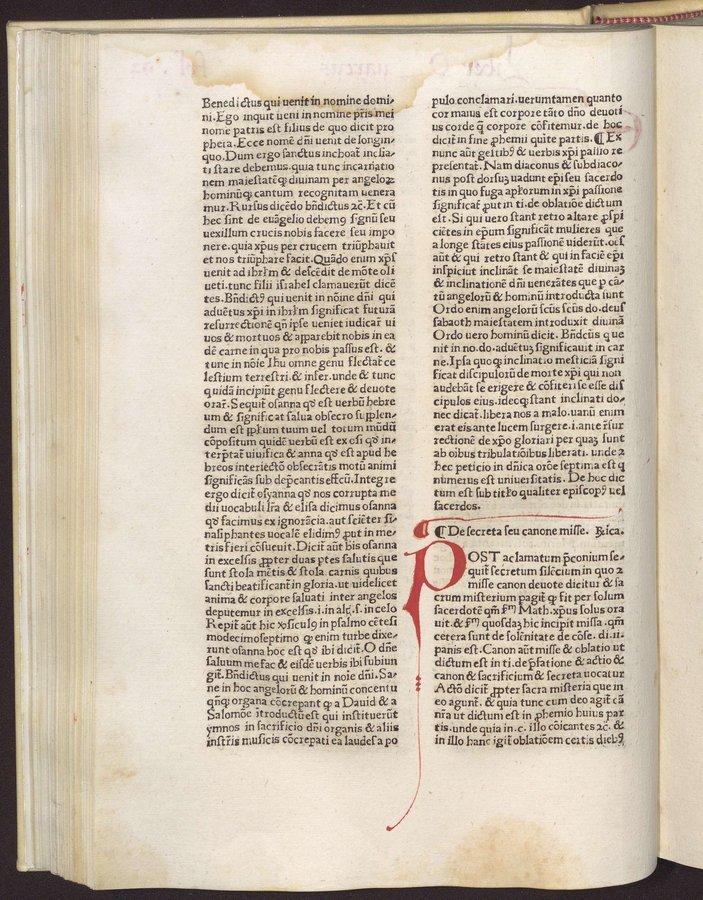 Benedictus qui uenit in nomine domi⸗
ni. Ego inquit ueni in nomine pr̄is mei
nome patris est filius de quo dicit pro
pheta. Ecce nomē dn̄i uenit de longin⸗
quo. Dum ergo sanctus inchoat͛ inclia⸗
ti stare debemus. quia tunc incarnatio
nem maiestatēq; diuinam per angeloꝝ
hominūq; cantum recognitam uenera
mur. Rursus dicēdo bn̄dictus ⁊c. Et cū
hec sint de euāgelio debemꝰ signū seu
uexillum crucis nobis facere seu impo
nere. quia xp̄us per crucem triūphauit
et nos triūphare facit. Quādo enim xp̄s
uenit ad ihrl̄m & descēdit de mōte oli
ueti. tunc filii israhel clamauerūt dicē
tes. Bn̄dictꝰ qui uenit in nōine dn̄i qui
aduētus xp̄i in ihrl̄m significat futurā
resurrectionē qn̄ ipse ueniet iudicar͛ ui
uos & mortuos & apparebit nobis in ea
dē carne in qua pro nobis passus est. &
tunc in nōie Ihu omne genu flectat͛ ce
lestium terrestri. & infer. unde & tunc
quidā incipiūt genu flectere & deuote
orar͛. Sequit͛ osanna qđ est uerbū hebre
um & significat salua obsecro supplen⸗
dum est ppl̄um tuum uel totum mūdū
cōpositum quidē uerbū est ex osi qđ in⸗
terp̄tat͛ uiuifica & anna qđ est apud he
breos interiectō obsecrātis motū animi
significās sub dep̄cantis effcū. Integre
ergo dicit͛ osyanna qđ nos corrupta me
dii uocabuli lr̄a & elisa dicimus osanna
qđ facimus ex ignorācia. aut sciēter si⸗
nasiphantes uocalē elidimꝰ ꝓut in me⸗
tris fieri cōsueuit. Dicit͛ aūt bis osanna
in excelsis ꝓpter duas ptes salutis que
sunt stola mētis & stola carnis quibus
sancti beatificant͛ in gloria. ut uidelicet
anima & corpore saluati inter angelos
deputemur in excelsis. i. in alt͛. s. in celo
Repit͛ aūt hic xp̄siculꝰ in psalmo cētesi
modecimoseptimo ꝙ enim turbe dixe⸗
runt osanna hoc est qđ ibi dicit͛. O dn̄e
saluum me fac & eisdē uerbis ibi subiun
git͛. Bn̄dictus qui uenit in noie dn̄i. Sa⸗
ne in hoc angelorū & hominū concentu
qn̄q; organa cōcrepant ꝙ a Dauid & a
Salomōe ītroductū est qui instituerūt
ymnos in sacrificio dn̄i organis & aliis
instr̄is musicis cōcrepati ea laudes͛ a po
pulo conclamari. uerumtamen quanto
cor maius est corpore tāto dn̄o deuoti
us corde ꝗ corpore cōfitemur. de hoc
dicit͛ in fine ꝓhemii quīte partis. ¶ Ex
nunc aūt gestibꝰ & uerbis xp̄i passio re
presentat͛. Nam diaconus & subdiaco⸗
nus post dorsuꝫ uadunt ep̄i seu sacerdo
tis in quo fuga apl̄orum in xp̄i passione
significat͛ ꝓut in ti. de oblatiōe dictum
est. Si qui uero stant retro altare ꝓspi
ciētes in ep̄um significāt mulieres que
a longe stātes eius passionē uiderūt. oēs
aūt & qui retro stant & qui in faciē ep̄i
inspiciut inclināt se maiestatē diuinaꝫ
& inclinationē dn̄i uenerātes que ꝑ cā⸗
tū angelorū & hominū introducta sunt
Ordo enim angelorū scūs scūs do. deus
sabaoth maiestatem introduxit diuinā
Ordo uero hominū dicit. Bn̄dcūs q ue
nit in no. do. aduētuꝫ significauit in car
ne. Ipsa quoqꝫ inclinatio mesticiā signi
ficat discipulorū de morte xp̄i qui non
audebāt se erigere & cōfiteri se esse dis
cipulos eius. ideoq; stant inclinati do⸗
nec dicat͛. libera nos a malo. uanū enim
erat eis ante lucem surgere. i. ante r̄sur
rectionē de xp̄o gloriari per quaꝫ sunt
ab oībus tribulatiōibus liberati. unde ⁊
hec peticio in dn̄ica orōe septima est q
numerus est uniuersitatis. De hoc dic
tum est sub titl̄o qualiter episcopꝰ uel
sacerdos.
¶ De secreta seu canone misse. Rīca.
POST aclamatum p̄conium se⸗
quit͛ secretum silēcium in quo ⁊
misse canon deuote dicitur & sa
crum misterium pagit͛ ꝙ fit per solum
sacerdotē qm̄ fm̄ Math. xp̄us solus ora
uit. & fm̄ quosdaꝫ hic incipit missa. qm̄
cetera sunt de solēnitate de cōse. di. ii⸗
panis est. Canon aūt misse & oblatio ut
dictum est in ti. de p̄fatione & actio &
canon & sacrificium & secreta uocatur
Actō dicit͛ ꝓpter sacra misteria que in
eo agunt͛. & quia tunc cum deo agit͛ cā
nr̄a ut dictum est in ꝓhemio huius par
tis. unde quia in. c. illo cōicantes ⁊c. &
in illo hanc igit͛ oblatiōem certis diebꝰ